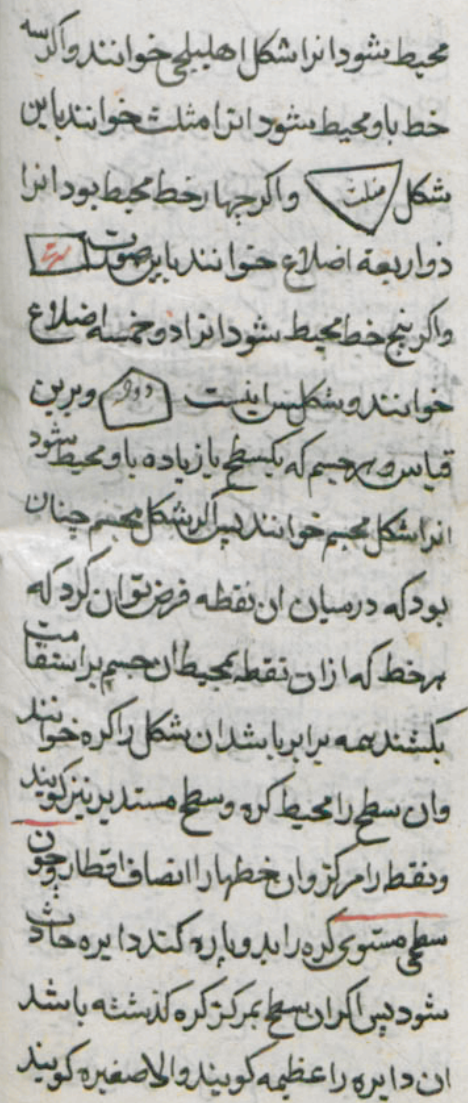 محیط شود انرا شکل اهلیلجی خوانند و اکر سه
خط باو محیط شود انرا مثلث خوانند باین
شکل مثلث واکر چهار خط محیط بود انرا
ذواربعة اضلاع خوانند باین صورت
واکر پنج خط محیط شود انرا ذو خمسه اضلاع
خوانند و شکلش اینست و برین
قیاس و هر جسم که یکسطح یا زیاده باو محیط شود
انرا شکل مجسم خوانند پس اکر شکل مجسم چنان
بود که درمیان ان نقطه فرض توان کرد که
هر خط که ازان نقطه بمحیط ان جسم بر استقامت
بکشند همه برابر باشد ان شکل را کره خوانند
وان سطح را محیط کره و سطح مستدیر نیز کویند
ونقطه را مرکز وان خطها را انصاف اقطار و چون
سطحی مستوی کره را بدو پاره کند دایره حادث
شود پس اکر ان سطح بمرکز کره کذشته باشد
ان دایره را عظیمه کویند والا صغیره کویند